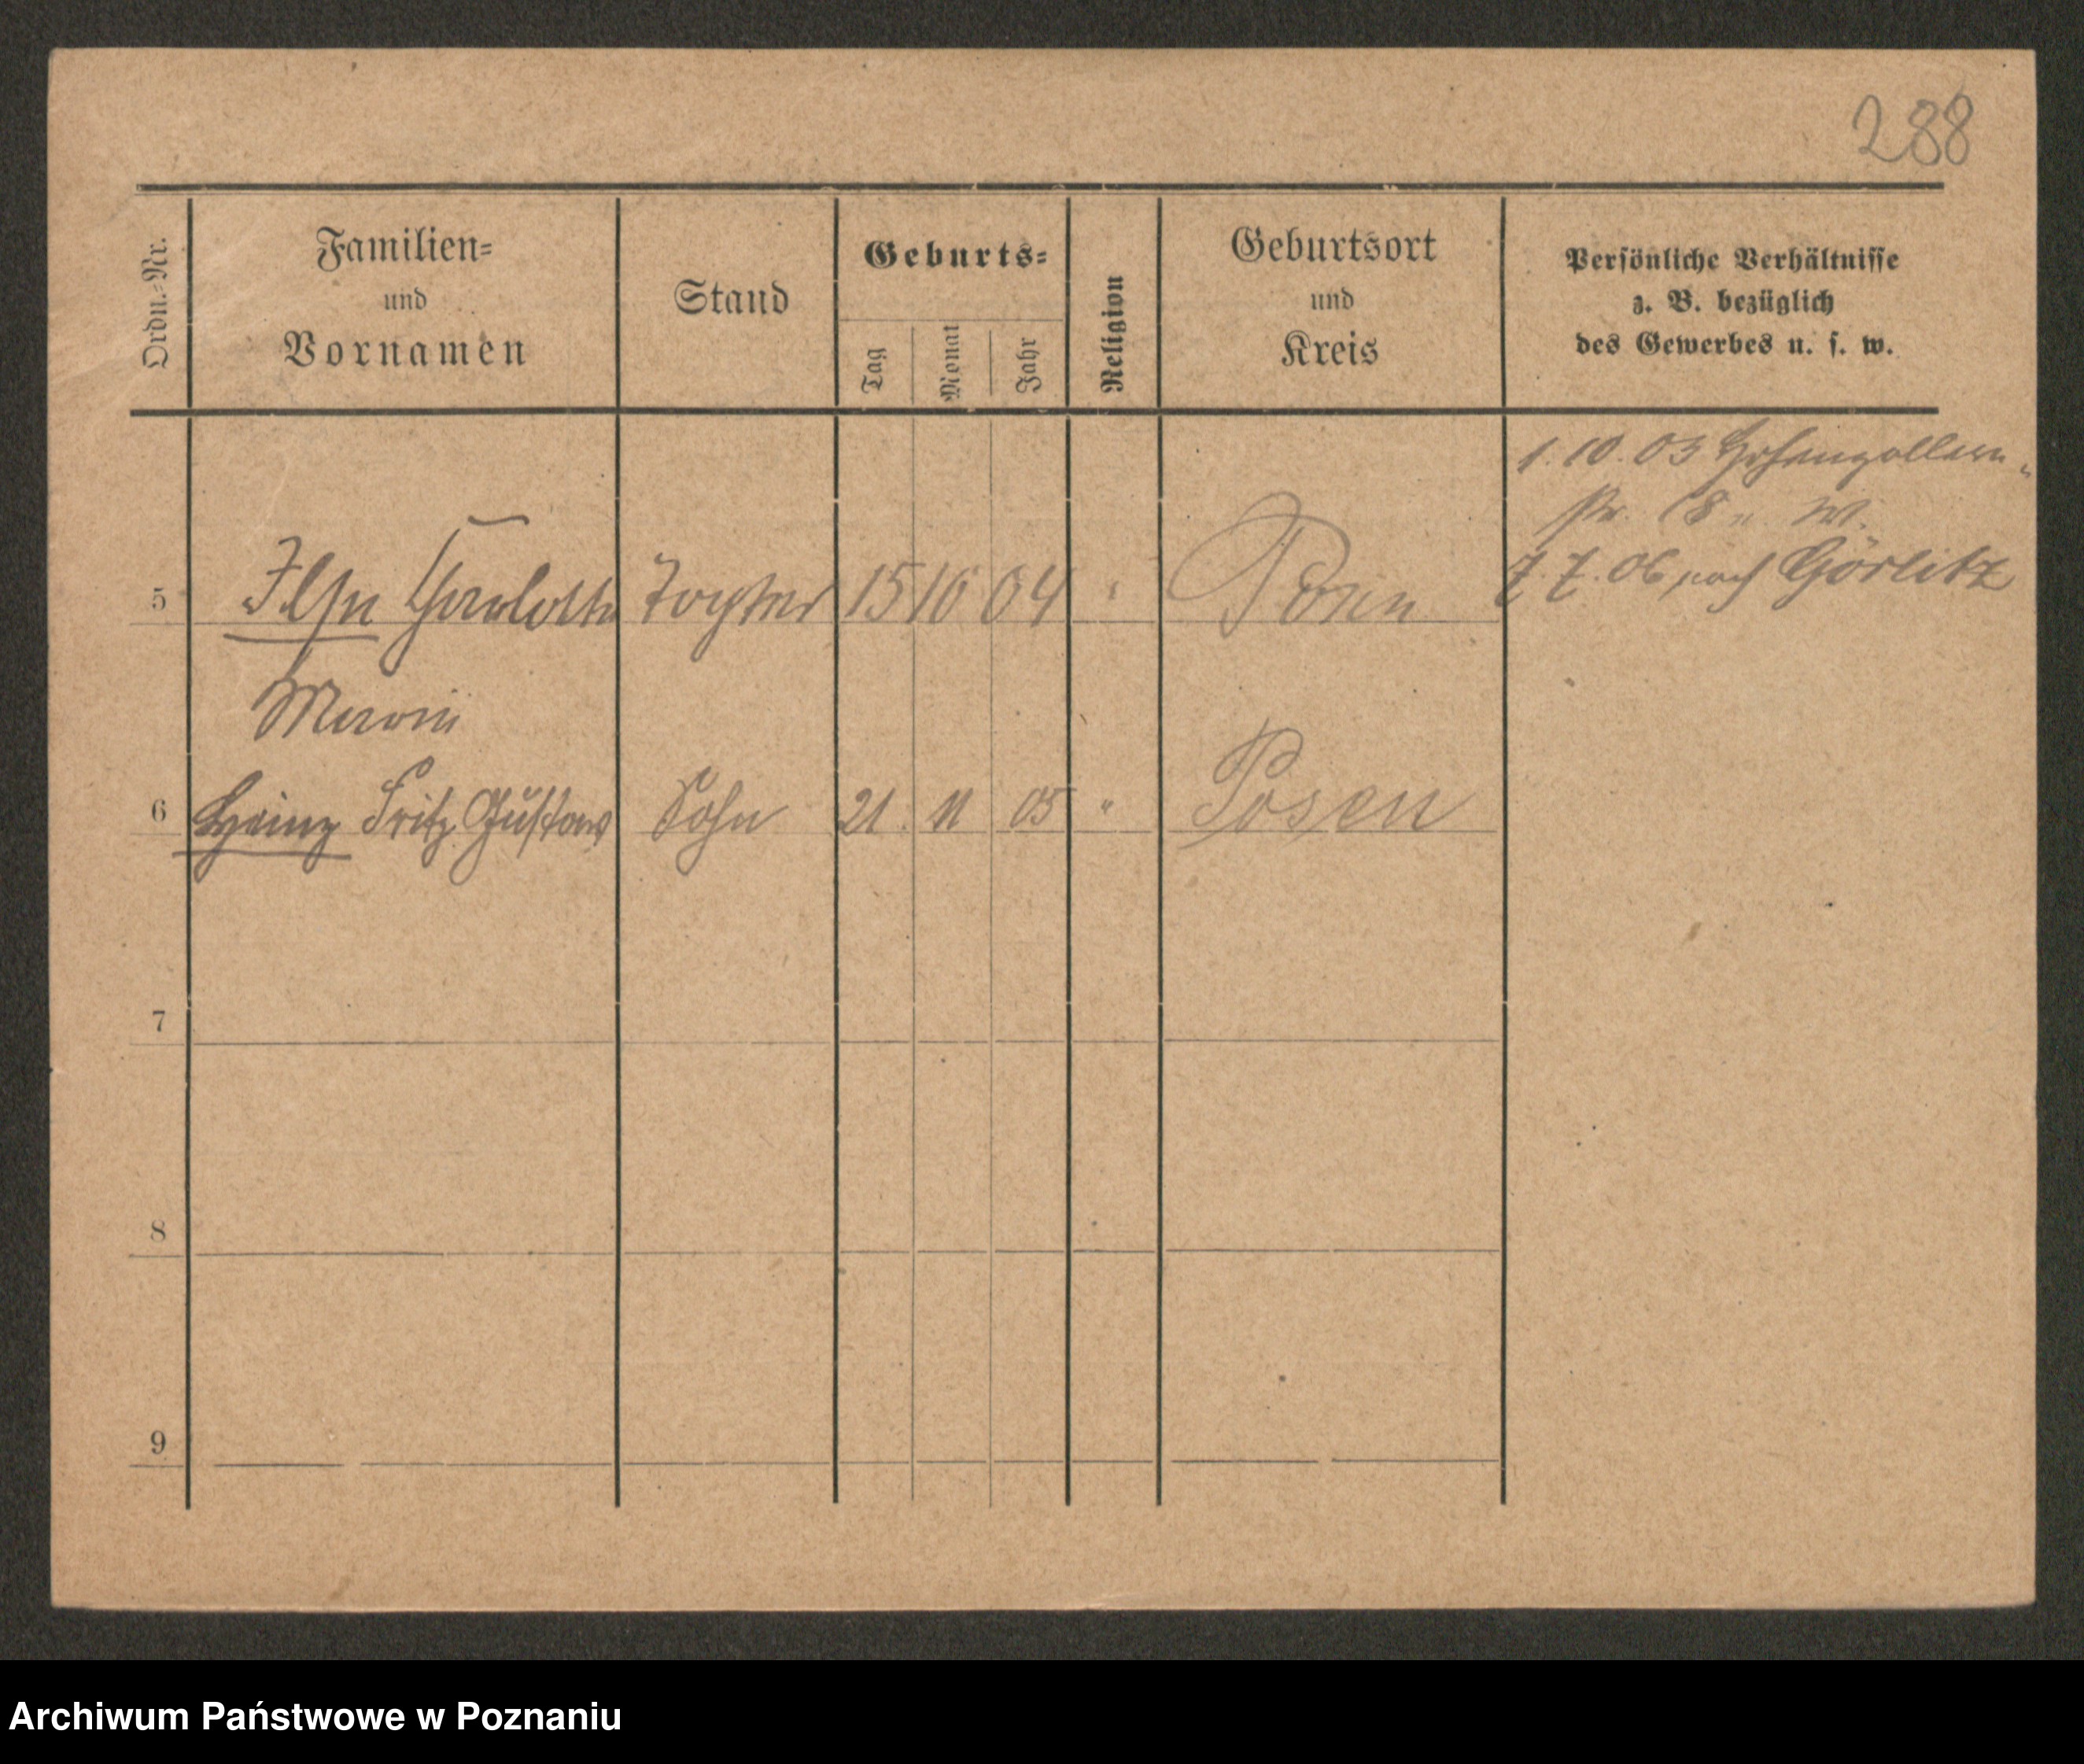 288
Ordn.-Nr.
Familien-
und
Vornamen
Stand
Geburts-
Tag
Monat
Jahr
Religion
Geburtsort
und
Kreis
Persönliche Verhältnisse
z. B. bezüglich
des Gewerbes u. s. w.
1. 10. 03 Hohenzollern-
str. W.
7. 7. 06 nach Görlitz
5 Ilse Tochter 15 10 04 " Posen
6 Heinz Fritz Gustav Sohn 21. 11 05 " Posen
7
8
9
Archiwum Państwowe w Poznaniu